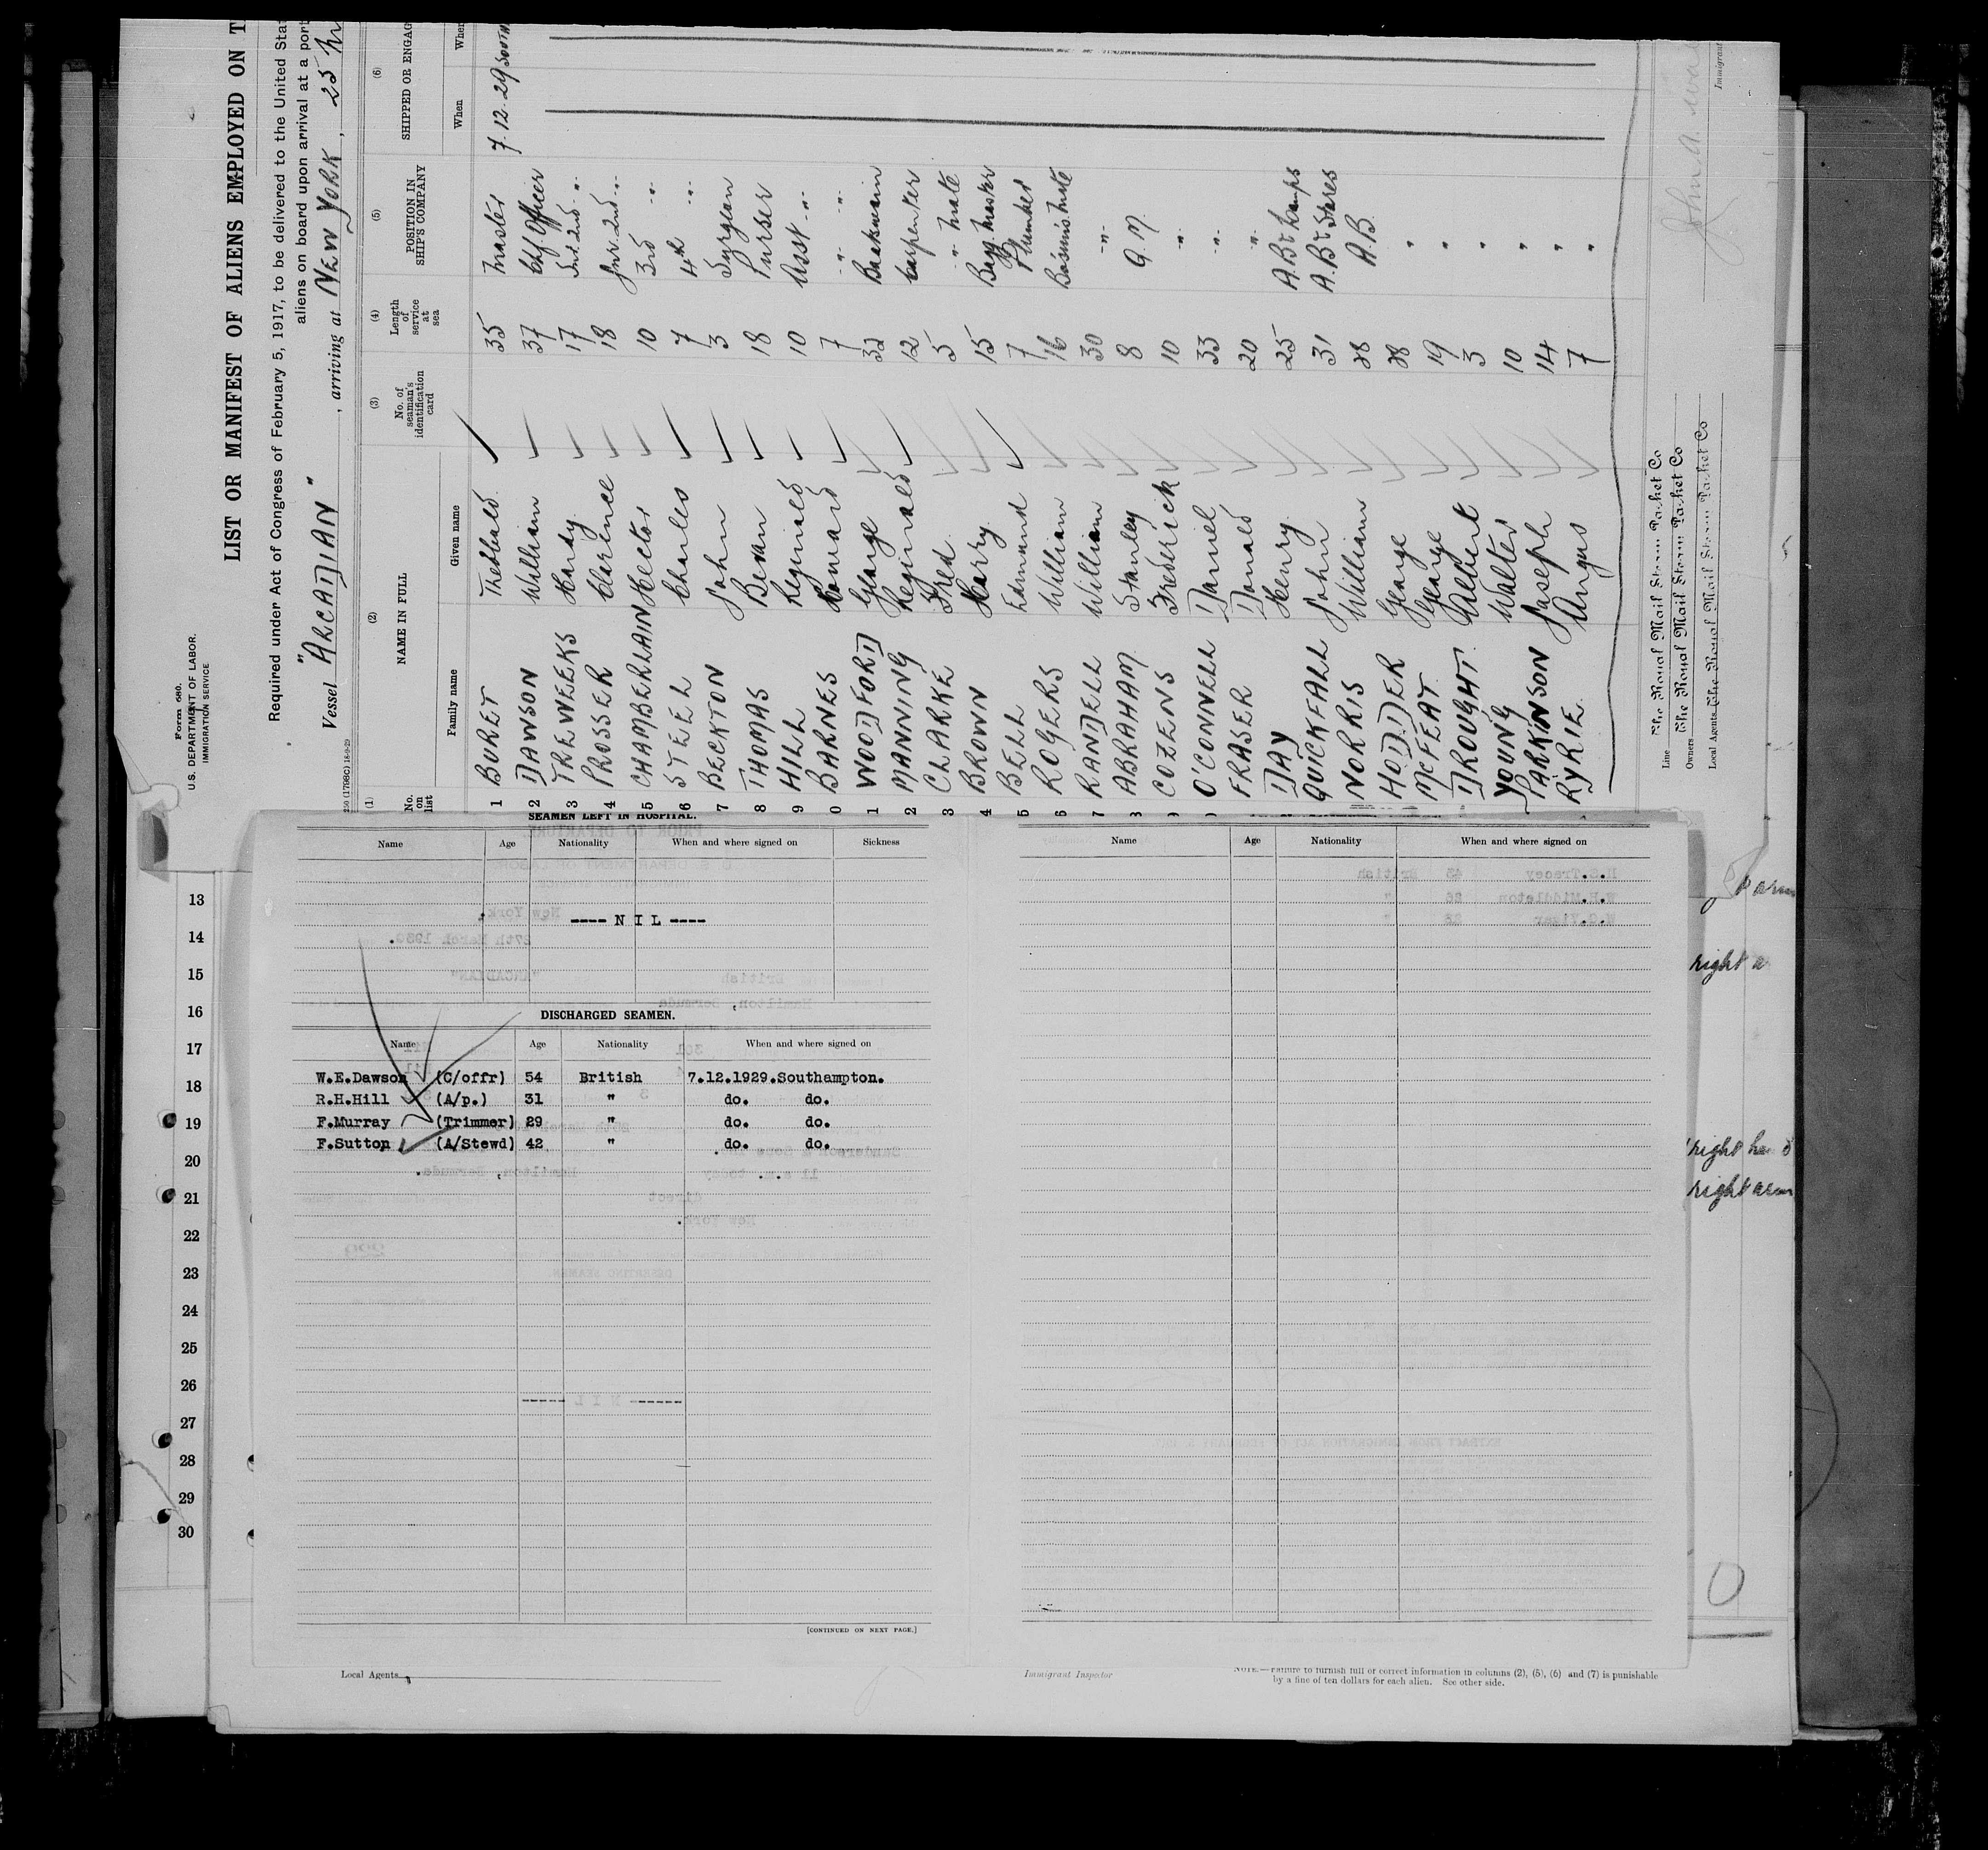 Form 680.
U.S. DEPARTMENT OF LABOR.
IMMIGRATION SERVICE
LIST OR MANIFEST OF ALIENS EMPLOYED ON T
Required under Act of Congress of February 5, 1917, to be delivered to the United Stat
aliens on board upon arrival at a port
Vessel "ARCADIAN", arriving at NEW YORK, 25
(1) (2) (3) (4) (5) (6)
No. on list NAME IN FULL No. of seaman's identification card Length of service at sea POSITION IN SHIP'S COMPANY SHIPPED OR ENGAG
Family name Given name When Wher
1 BURET Theobald 35 Master 7.12.29 SOUTH
2 DAWSON William 37 Chf Officer
3 TREWEEKS Hardy 17 Snr 2nd "
4 PROSSER Clarence 18 Jnr 2nd "
5 CHAMBERLAIN Hector 10 3rd "
6 STEEL Charles 7 4th "
7 BECKTON John 3 Surgeon
8 THOMAS Bevan 18 Purser
9 HILL Reginald 10 Asst "
0 BARNES Howard 7 " "
1 WOODFORD George 32 Boatswain
2 MANNING Reginald 12 Carpenter
3 CLARKE Fred 5 " Mate
4 BROWN Harry 15 Bagg. Master
5 BELL Edmund 7 Plumber
6 ROGERS William 16 Bosuns Mate
7 RANDELL William 30 "
8 ABRAHAM Stanley 8 Q.M.
9 COZENS Frederick 10 "
0 O'CONNELL Daniel 33 "
FRASER Donald 20 "
DAY Henry 25 A.B & Lamps
QUICKFALL John 31 A.B & Stores
NORRIS William 28 A.B.
HODDER George 28 "
McFEAT George 19 "
DROUGHT Albert 3 "
YOUNG Walter 10 "
PARKINSON Joseph 14 "
RYRIE Angus 7 "
Line The Royal Mail Steam Packet Co
Owners The Royal Mail Steam Packet Co
Local Agents The Royal Mail Steam Packet Co
Immigrant
SEAMEN LEFT IN HOSPITAL.
Name Age Nationality When and where signed on Sickness
---- N I L ----
DISCHARGED SEAMEN.
Name Age Nationality When and where signed on
W.E.Dawson (C/offr) 54 British 7.12.1929.Southampton.
R.H.Hill (A/p.) 31 " do. do.
F.Murray (Trimmer) 29 " do. do.
F.Sutton (A/Stewd) 42 " do. do.
[CONTINUED ON NEXT PAGE.]
Name Age Nationality When and where signed on
13
14
15
16
17
18
19
20
21
22
23
24
25
26
27
28
29
30
right a
right hand
right arm
Local Agents
Immigrant Inspector
NOTE.—Failure to furnish full or correct information in columns (2), (5), (6) and (7) is punishable
by a fine of ten dollars for each alien. See other side.